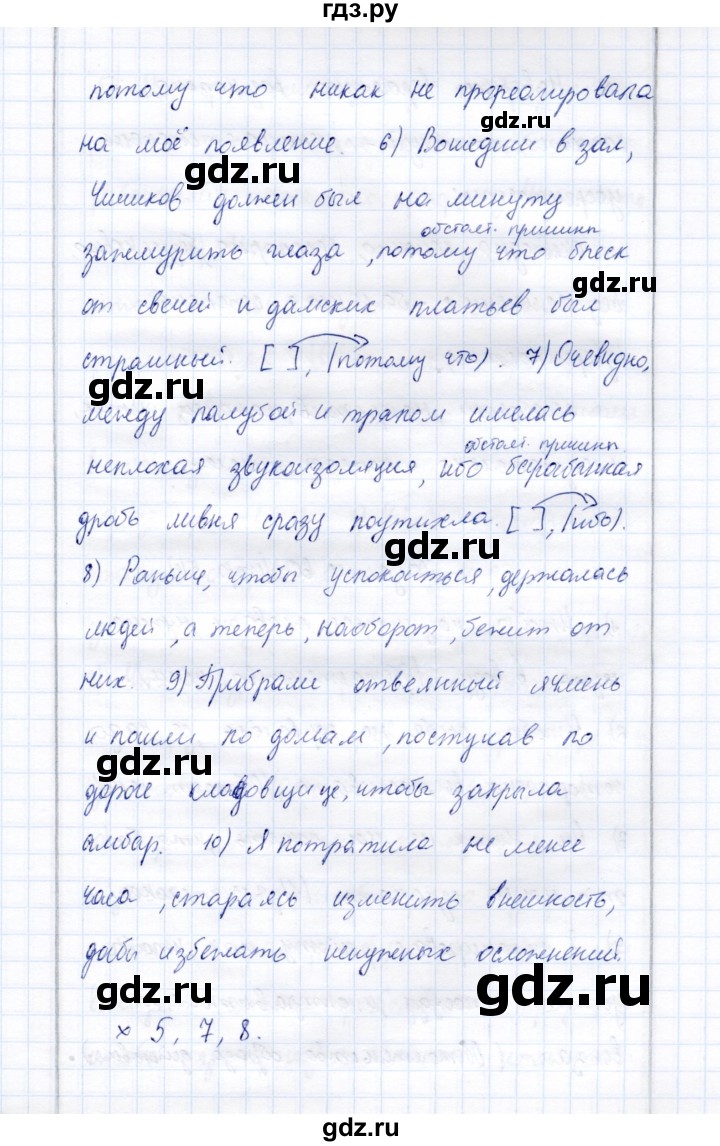 гдз.ру
потому что никак не прореагировала
gdz.ru
на моё появление. 6) Вошедши в зал,
gdz.ru
Чичиков должен был на минуту
обстоят. причины
зажмурить глаза, потому что блеск
gdz.ru
от свечей и дамских платьев был
страшный. [ ], (потому что). 7) Очевидно,
gdz.ru
между палубой и трапом имелась
обстоят. причины.
неплохая звукоизоляция, ибо барабанная
gdz.ru
дробь ливня сразу поутихла. [ ], (ибо).
gdz.ru
8) Раньше, чтобы успокоиться, держалась
людей, а теперь, наоборот, бежит от
них. 9) Прибрали отвеянный ячмень
gdz.ru
и пошли по домам, постучав по
gdz.ru
дороге кладовщице, чтобы закрыла
амбар. 10) Я потратила не менее
gdz.ru
часа, стараясь изменить внешность,
дабы избежать ненужных осложнений.
gdz.ru
х 5, 7, 8.
gdz.ru